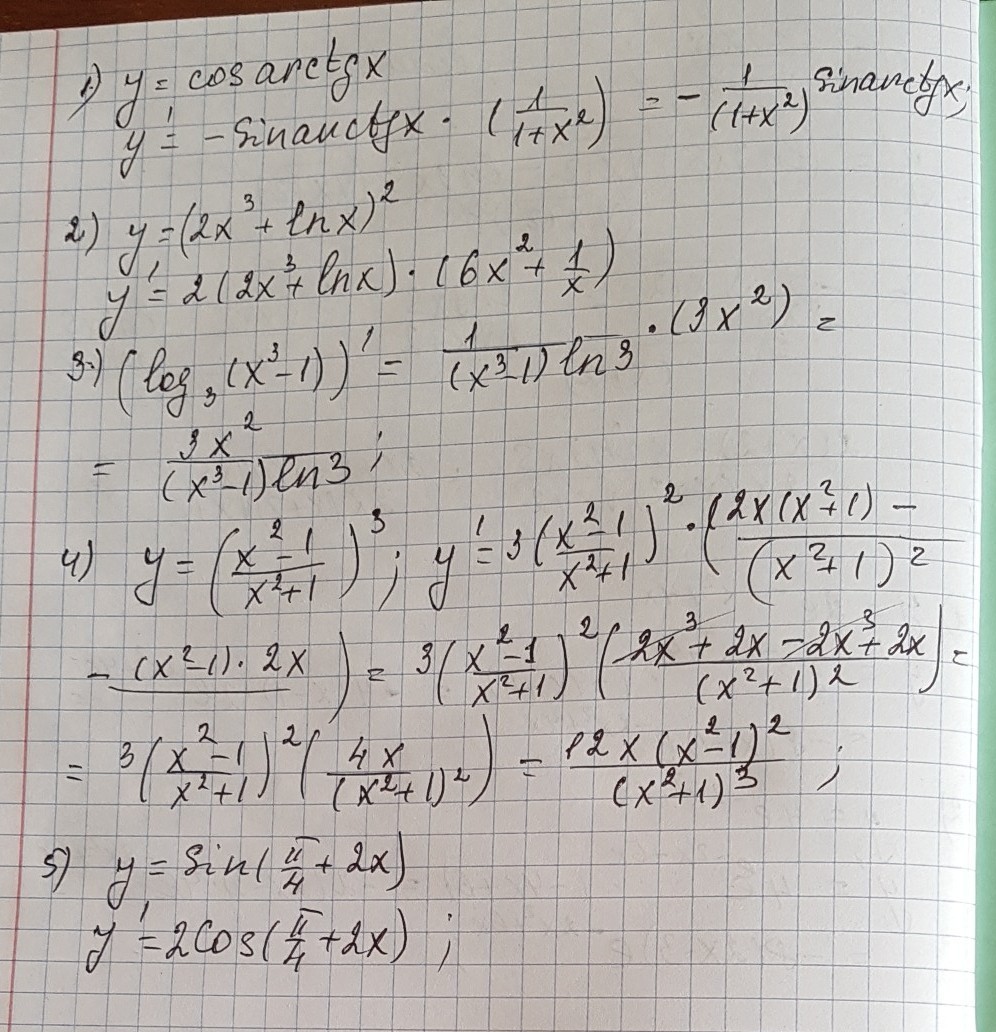 1) y = cos arctg x
y' = - Sin arctg x · (1/(1+x²)) = - 1/(1+x²) Sin arctg x;
2) y = (2x³ + ln x)²
y' = 2(2x³ + ln x) · (6x² + 1/x)
3) (log₃(x³-1))' = 1/((x³-1) ln 3) · (3x²) =
= 3x²/((x³-1) ln 3);
4) y = ((x²-1)/(x²+1))³; y' = 3((x²-1)/(x²+1))² · (2x(x²+1) -/(x²+1)²
- (x²-1)·2x) = 3((x²-1)/(x²+1))² ((2x³ + 2x - 2x³ + 2x)/(x²+1)²) =
= 3((x²-1)/(x²+1))² (4x/(x²+1)²) = 12x(x²-1)²/(x²+1)³;
5) y = Sin(π/4 + 2x)
y' = 2Cos(π/4 + 2x);